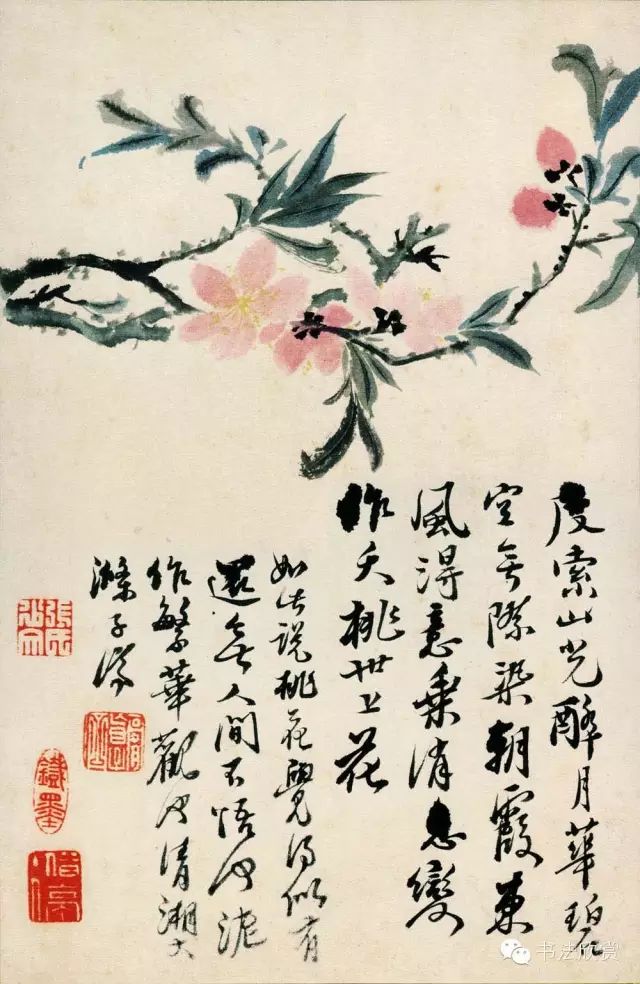 度索山光醉月華碧
空無際染朝霞東
風得意乘消息變
作夭桃世上花
如此說桃花覺得似有
還無人間不悟何泥
作繁華觀清湘大
滌子濟
书法欣赏